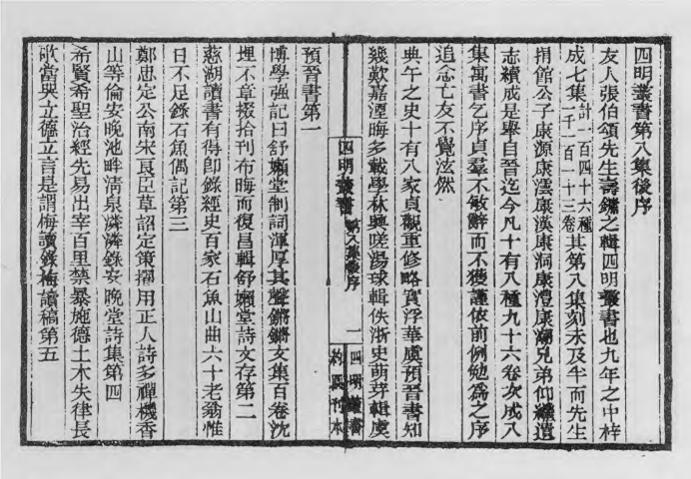 四明叢書第八集後序
友人張伯頌先生壽鏞之輯四明叢書也九年之中梓
成七集計一百四十六種一千一百一十三卷其第八集刻未及半而先生
捐館公子康源康澐康漢康洞康澧康瀛兄弟仰繼遺
志續成是舉自晉迄今凡十有八種九十六卷次成八
集寓書乞序貞羣不敏辭而不獲謹依前例勉爲之序
追念亡友不覺泫然
典午之史十有八家貞觀重修略實浮華虞預晉書知
幾歎嘉湮晦多載學林興嗟湯球輯佚浙史萌芽輯虞
四明叢書 第八集後序 一 四明叢書 約園刊本
預晉書第一
博學強記曰舒嬾堂制詞渾厚其聲鏘鏘文集百卷沈
埋不章掇拾刊布晦而復昌輯舒嬾堂詩文存第二
慈湖讀書有得卽錄經史百家石魚山曲六十老翁惟
日不足錄石魚偶記第三
鄭忠定公南宋良臣草詔定策擢用正人詩多禪機香
山等倫安晚池畔淸泉潾潾錄安晚堂詩集第四
希賢希聖治經先易出宰百里禁暴施德土木失律長
歌當哭立德立言是謂梅讀錄梅讀稿第五